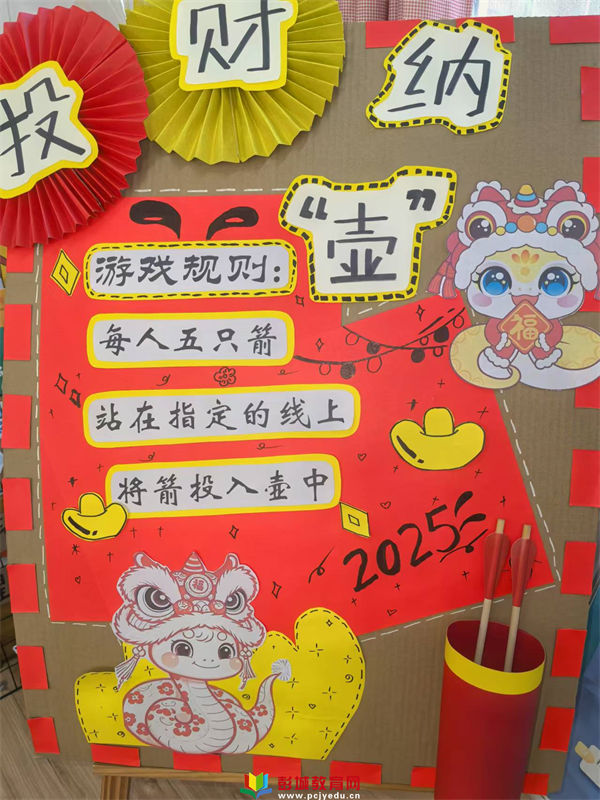 投财纳
“壶”
游戏规则：
每人五只箭
站在指定的线上
将箭投入壶中
福
2025
福
彭城教育网
www.pcjyedu.cn